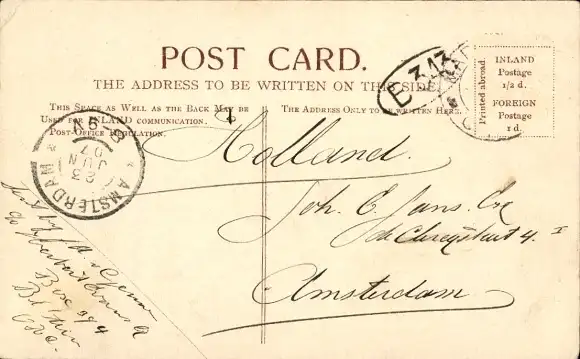 POST CARD.
THE ADDRESS TO BE WRITTEN ON THIS SIDE.
THIS SPACE AS WELL AS THE BACK MAY BE
USED FOR INLAND COMMUNICATION.
POST-OFFICE REGULATION.
THE ADDRESS ONLY TO BE WRITTEN HERE.
INLAND
Postage
1/2 d.
FOREIGN
Postage
1 d.
Printed abroad.
D 313
AMSTERDAM
23
JUN
07
Holland.
Joh. C. Jans. Esq
4. I
Amsterdam
Box